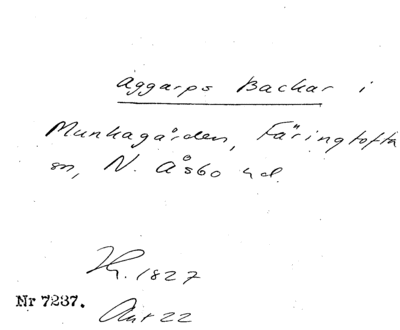 Aggarps Backar i
Munkagården, Färingtofta
sn, N. Åsbo hd.
Hr. 1827
Nr 7237.
Akt 22